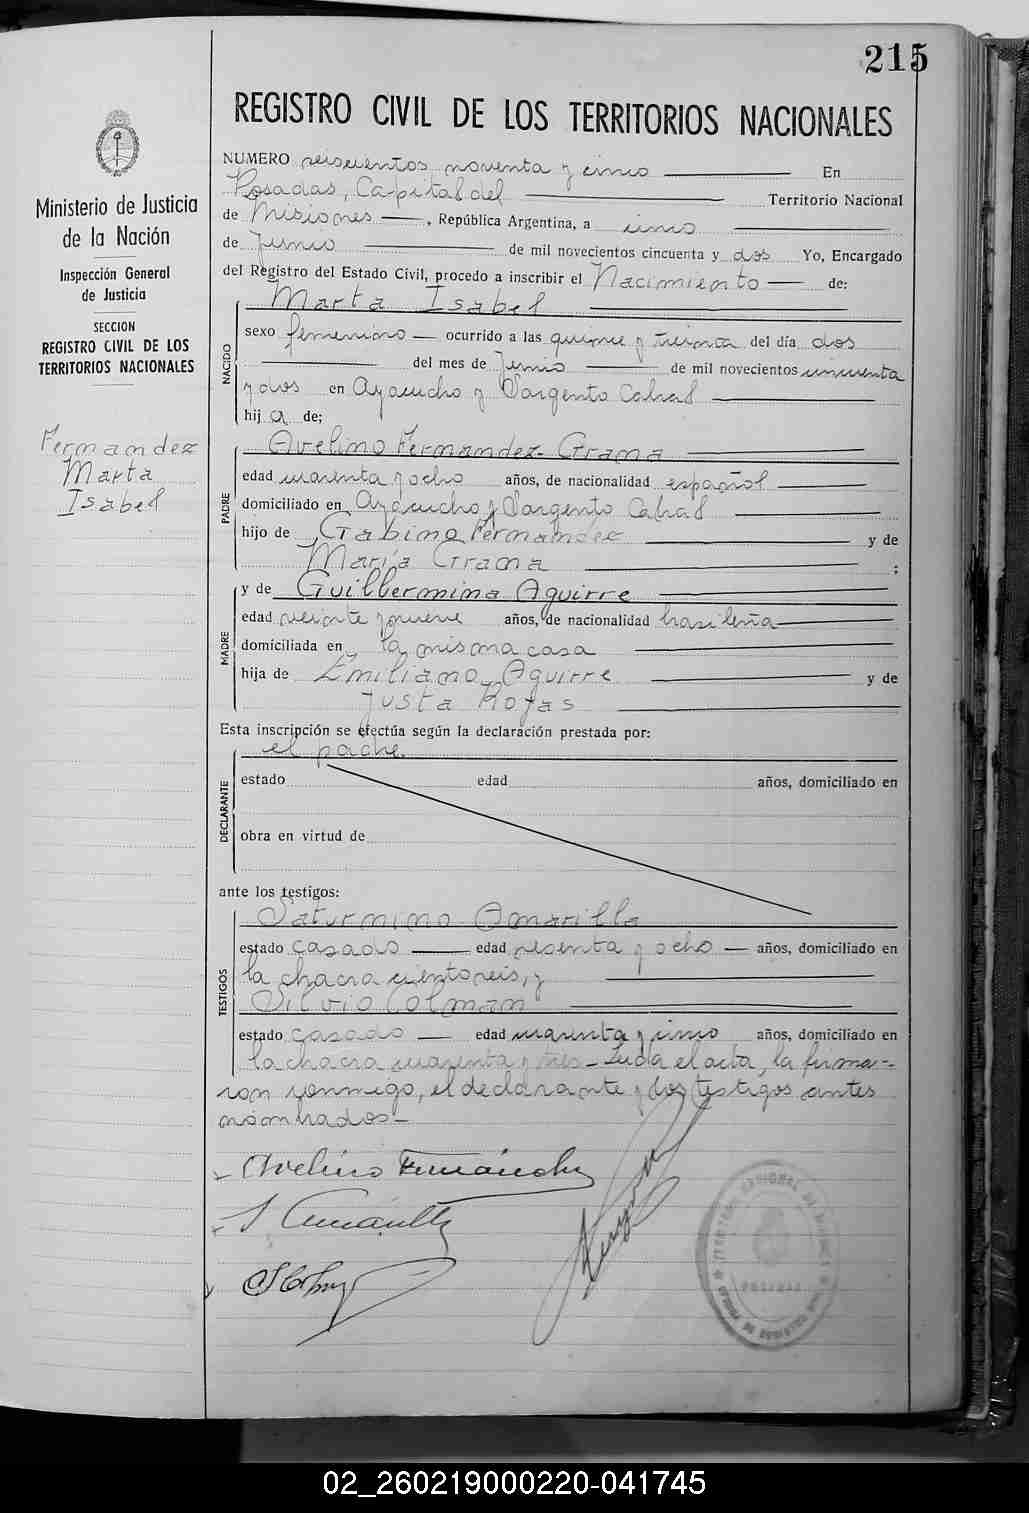 215
REGISTRO CIVIL DE LOS TERRITORIOS NACIONALES
Ministerio de Justicia
de la Nación
Inspección General
de Justicia
SECCION
REGISTRO CIVIL DE LOS
TERRITORIOS NACIONALES
Fernandez
Marta
Isabel
NUMERO seiscientos noventa y cinco En
Posadas, Capital del Territorio Nacional
de Misiones, República Argentina, a cinco
de Junio de mil novecientos cincuenta y dos Yo, Encargado
del Registro del Estado Civil, procedo a inscribir el Nacimiento de:
NACIDO
Marta Isabel
sexo femenino ocurrido a las quince y treinta del día dos
del mes de Junio de mil novecientos cincuenta
y dos en Ayacucho y Sargento Cabral
hij a de;
PADRE
Avelino Fernandez Grana
edad cuarenta y ocho años, de nacionalidad español
domiciliado en Ayacucho y Sargento Cabral
hijo de Gabino Fernandez y de
María Grana ;
MADRE
y de Guillermina Aguirre
edad veinte y nueve años, de nacionalidad brasileña
domiciliada en la misma casa
hija de Emiliano Aguirre y de
Justa Rojas
Esta inscripción se efectúa según la declaración prestada por:
DECLARANTE
el padre.
estado edad años, domiciliado en
obra en virtud de
ante los testigos:
TESTIGOS
Saturnino Amarilla
estado casado edad sesenta y ocho años, domiciliado en
la chacra ciento seis, y
Silvio Colman
estado casado edad cuarenta y cinco años, domiciliado en
la chacra cuarenta y tres - Leída el acta, la firma-
ron conmigo, el declarante y los testigos antes
nombrados -
Avelino Fernández
S Amarilla
POSADAS
02_260219000220-041745